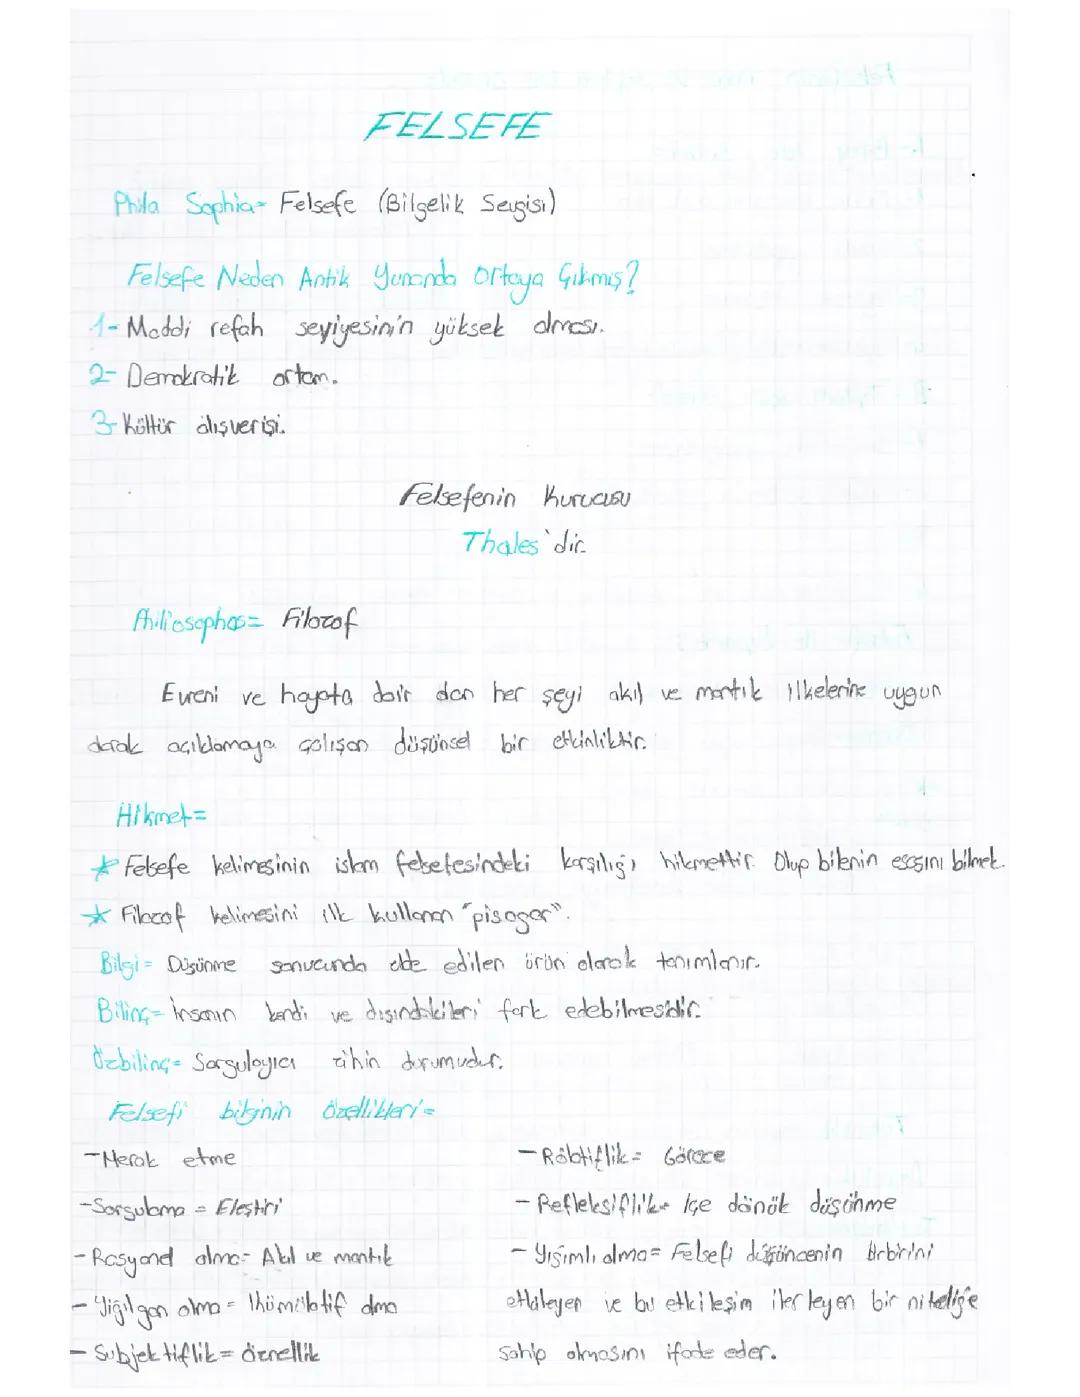 FELSEFE
Phila Sophia= Felsefe (Bilgelik Sevgisi)
Felsefe Neden Antik Yunanda Ortaya Çıkmış?
1- Maddi refah seviyesinin yüksek olması.
2- Demokratik ortam.
3- Kültür alışverişi.
Felsefenin Kurucusu
Thales'dir.
Philiosophos= Filozof
Evreni ve hayata dair olan her şeyi akıl ve mantık ilkelerine uygun
olarak açıklamaya çalışan düşünsel bir etkinliktir.
Hikmet=
* Felsefe kelimesinin islam felsefesindeki karşılığı hikmettir. Olup bitenin esasını bilmek.
* Filozof kelimesini ilk kullanan "pisagor".
Bilgi= Düşünme sonucunda elde edilen ürün olarak tanımlanır.
Bilinç= insanın kendi ve dışındakileri fark edebilmesidir.
Özbilinç= Sorgulayıcı zihin durumudur.
Felsefi bilginin özellikleri=
- Merak etme
- Sorgulama = Eleştiri
- Rasyonel olma= Akıl ve mantık
- Yığılgan olma = Kümülatif olma
- Subjektiflik= öznellik
- Rölatiflik= Görece
- Refleksiflik= İçe dönük düşünme
- Yığımlı olma= Felsefi düşüncenin birbirini
etkileyen ve bu etkileşim ilerleyen bir niteliğe
sahip olmasını ifade eder.